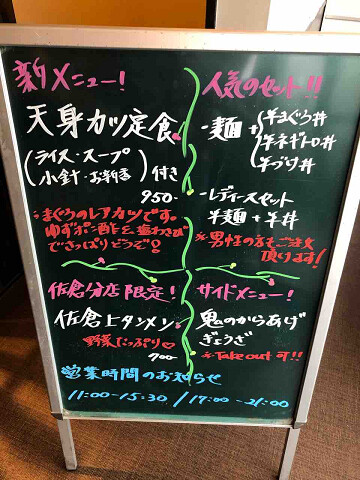 新メニュー!
天身カツ定食
(ライス・スープ
小針・お新香)付き
950-
・まぐろのレアカツです。
ゆずポン酢と塩わさび
でさっぱりどうぞ!
人気のセット!!
・麺+
半まぐろ丼
半ネギトロ丼
半づけ丼
・レディースセット
半麺+半丼
※男性の方もご注文
頂けます!
佐倉分店限定!
佐倉上タンメン。
野菜たっぷり♡
700-
サイドメニュー!
鬼のからあげ
ぎょうざ
※Take out 可!!
営業時間のお知らせ
11:00-15:30 / 17:00-21:00